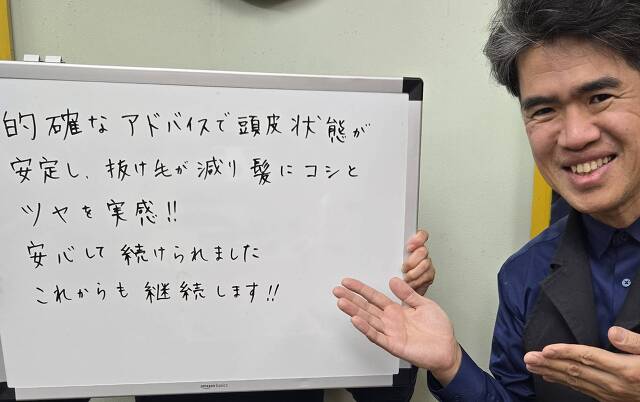 的確なアドバイスで頭皮状態が
安定し、抜け毛が減り髪にコシと
ツヤを実感!!
安心して続けられました
これからも継続します!!
amazon basics